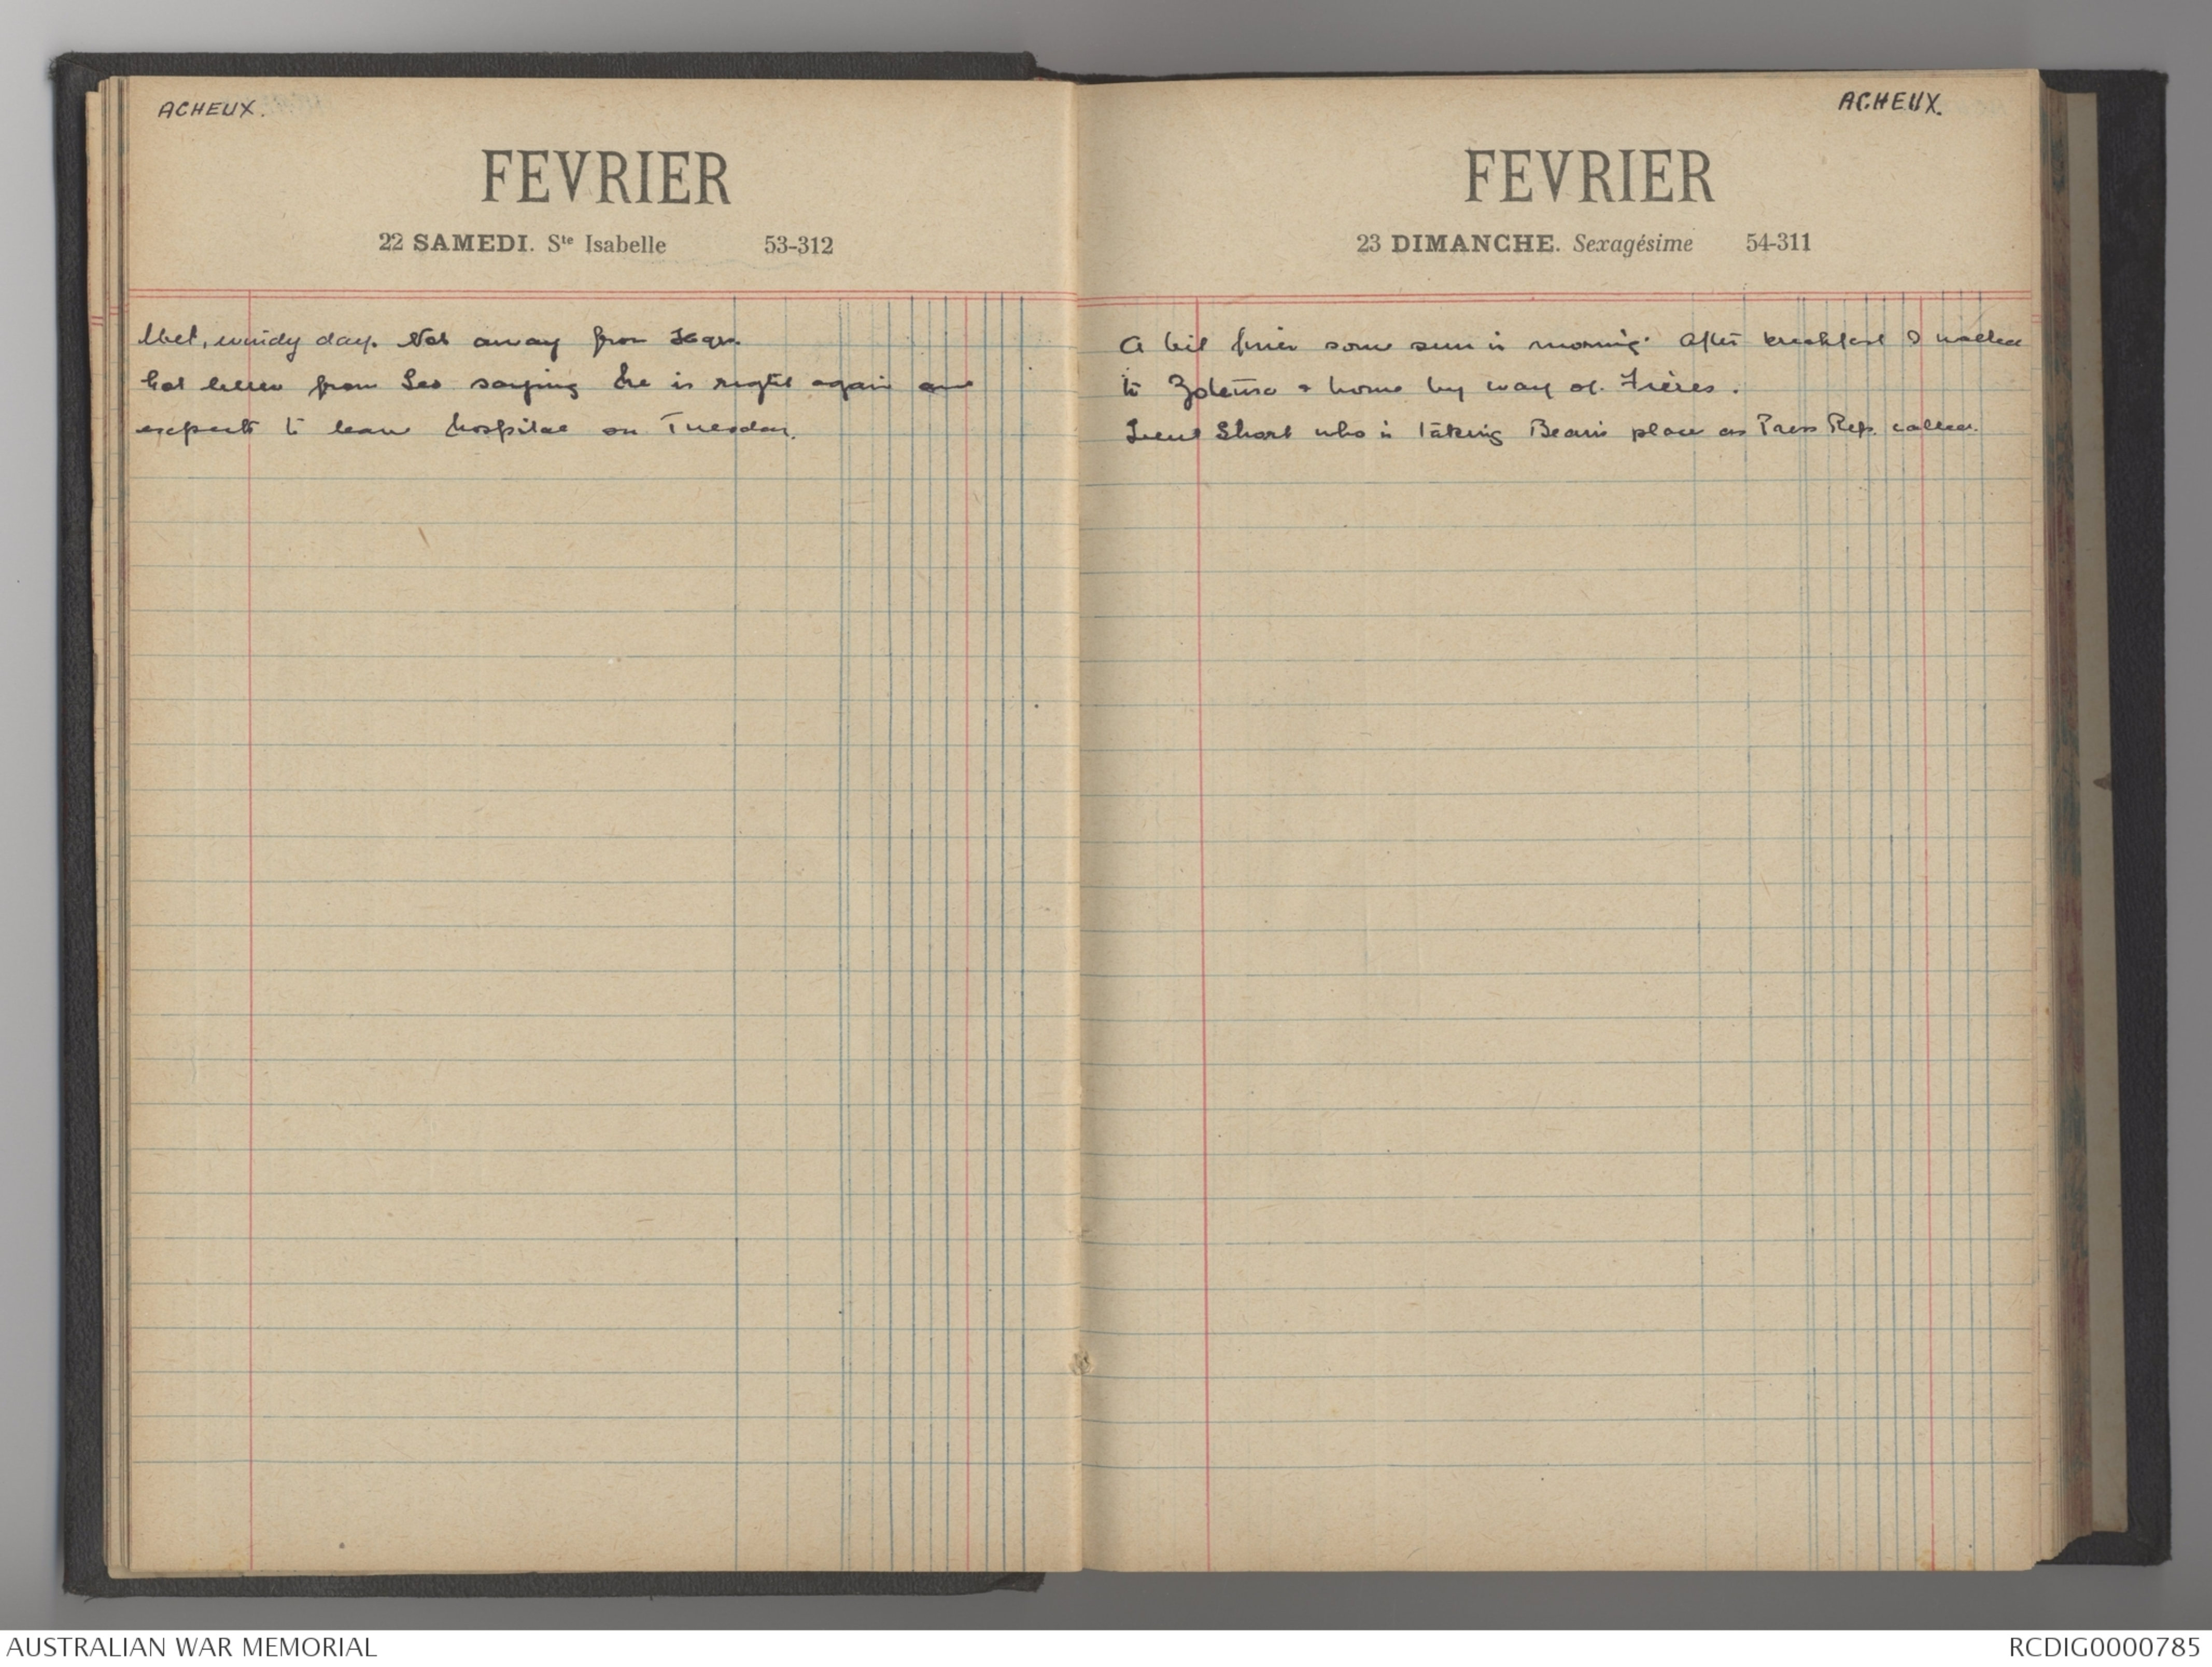 ACHEUX.
FEVRIER
22 SAMEDI. Ste Isabelle 53-312
Wet, windy day. Not away from Hqrs.
Got letter from Leo saying he is right again and
expects to leave hospital on Tuesday.
ACHEUX.
FEVRIER
23 DIMANCHE. Sexagésime 54-311
A bit finer some sun in morning. After breakfast I walked
to & home by way of.
Lieut Short who is taking Bean's place as Press Rep. called.
AUSTRALIAN WAR MEMORIAL
RCDIG0000785